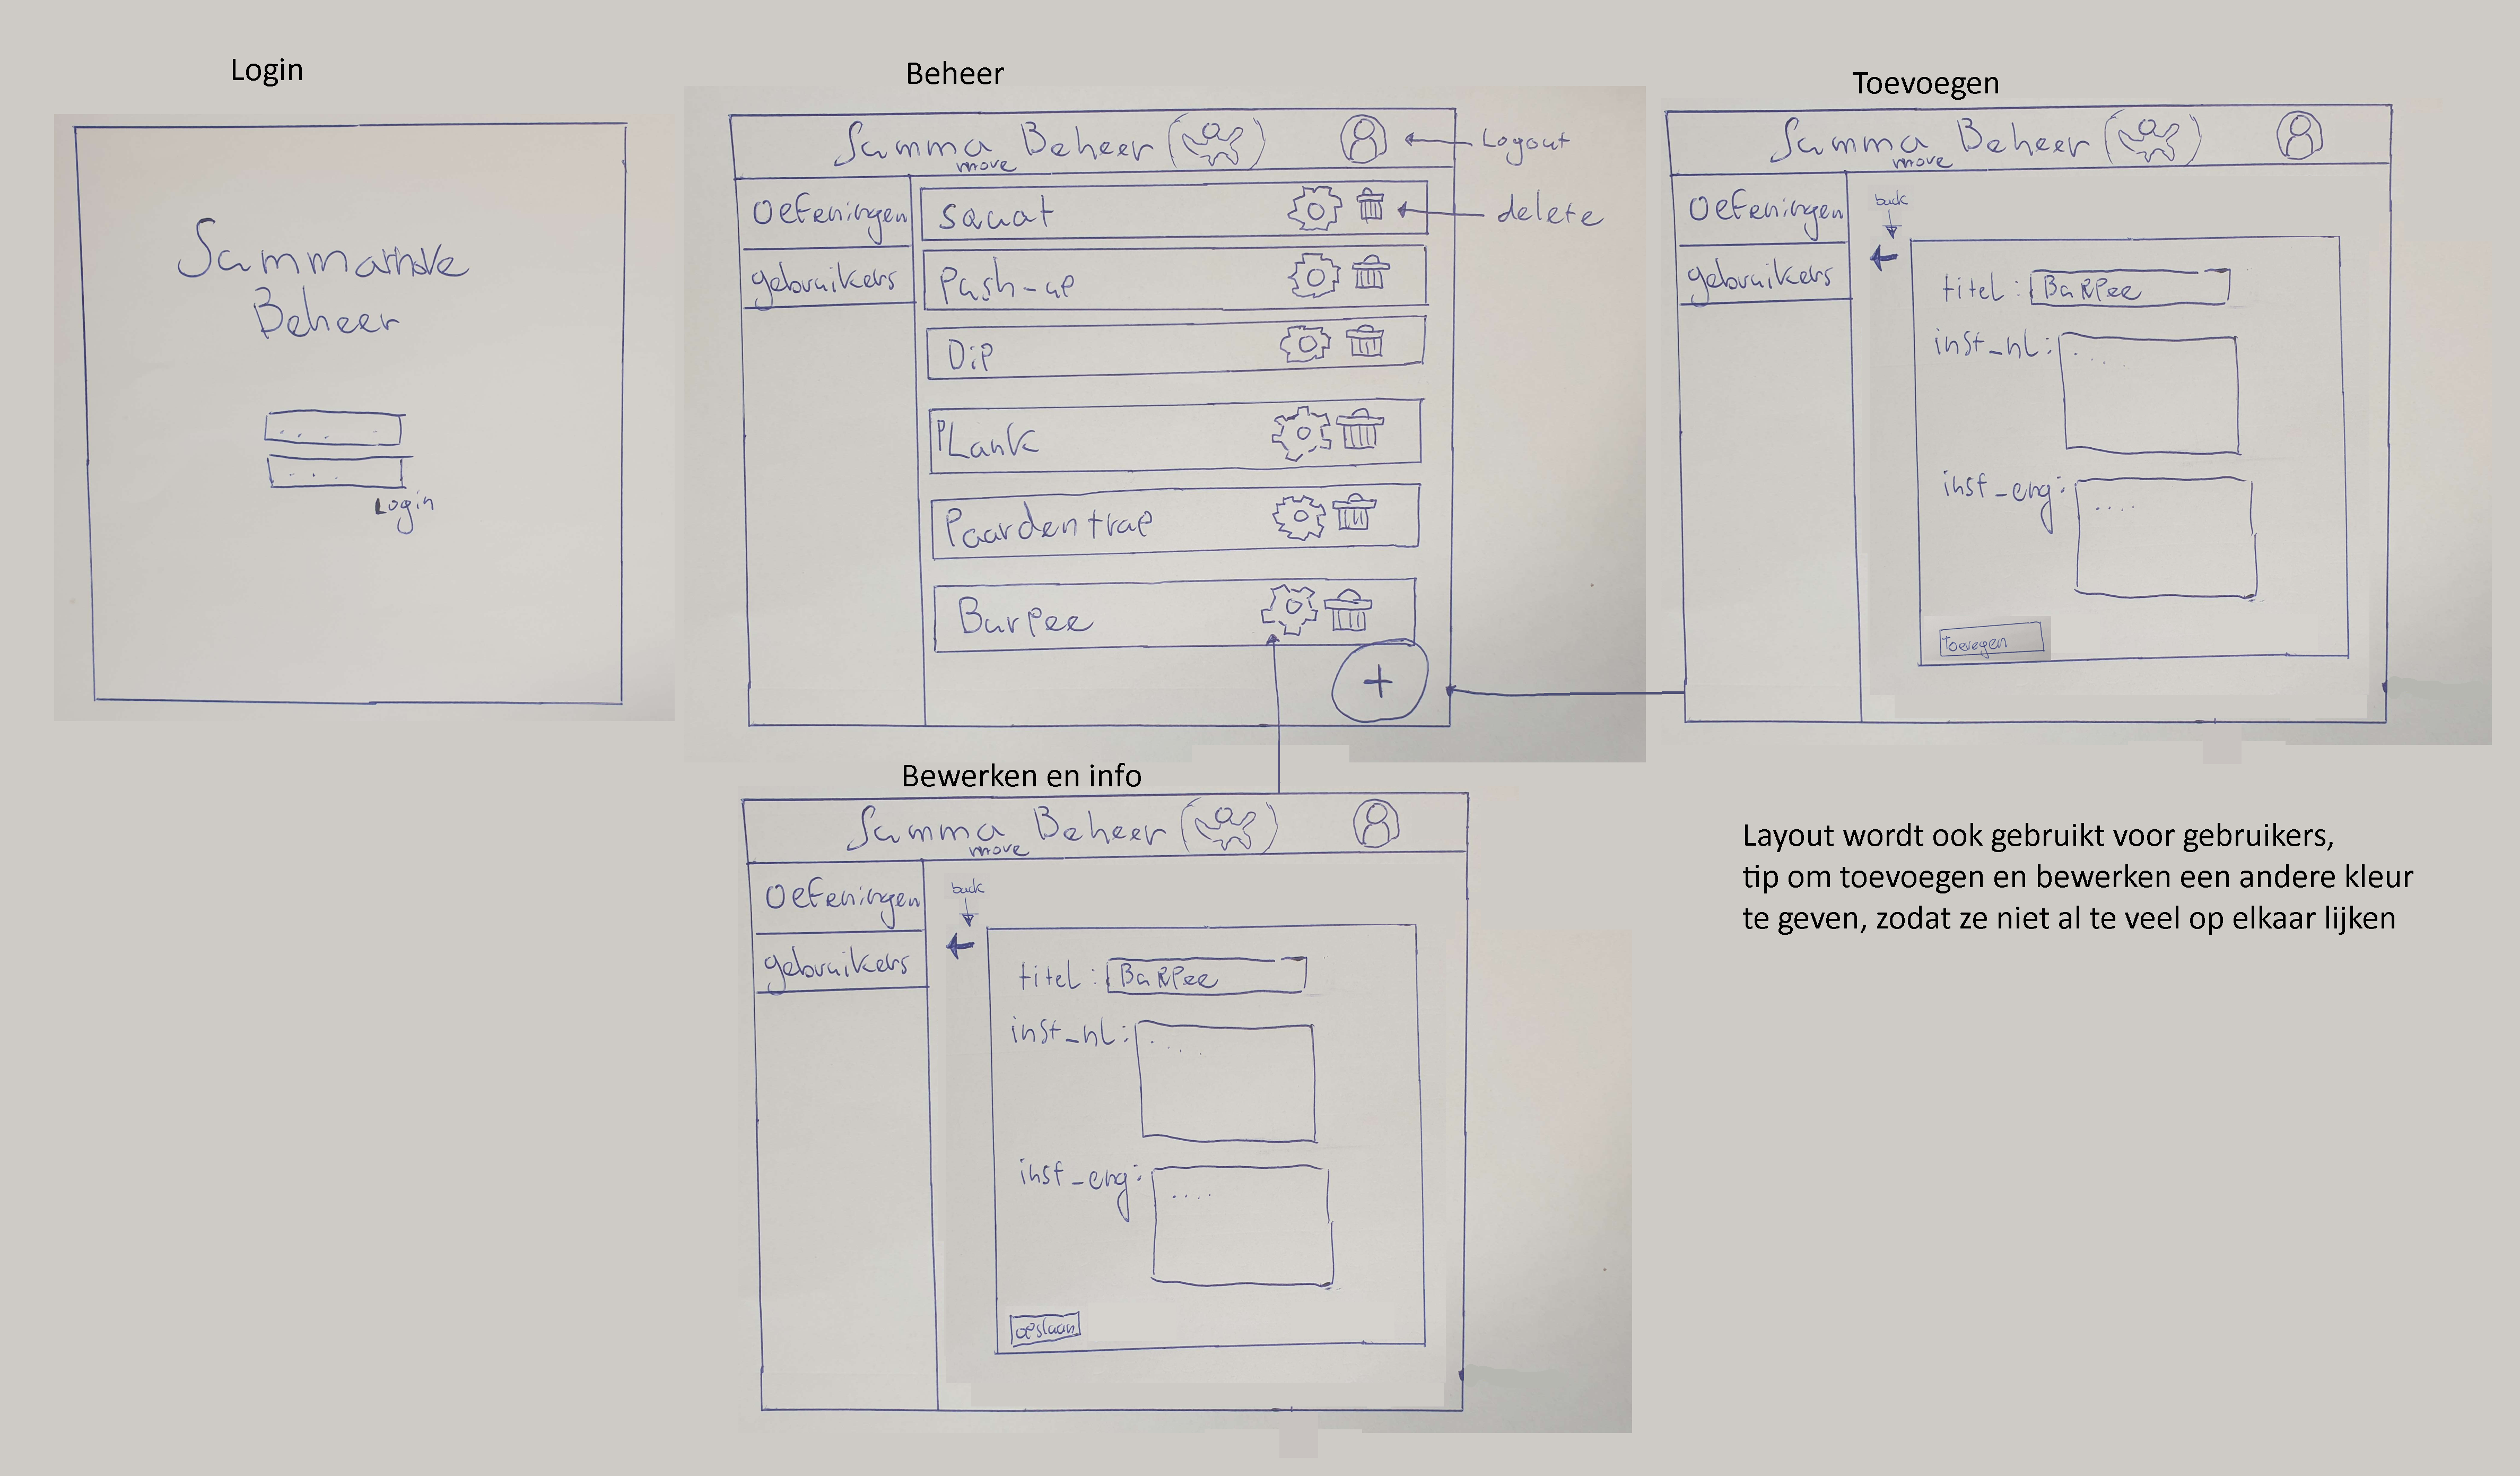 Login
SammaMove
Beheer
Login
Beheer
Samma Beheer
move
Logout
Oefeningen
gebruikers
squat
delete
Push-up
Dip
PLank
Paardentrap
Burpee
+
Toevoegen
Samma Beheer
move
Oefeningen
gebruikers
back
titel: BuRPee
inst_nl: ....
inst_eng: ....
Toevegen
Bewerken en info
Samma Beheer
move
Oefeningen
gebruikers
back
titel: BuRPee
inst_nl: ....
inst_eng: ....
opslaan
Layout wordt ook gebruikt voor gebruikers,
tip om toevoegen en bewerken een andere kleur
te geven, zodat ze niet al te veel op elkaar lijken